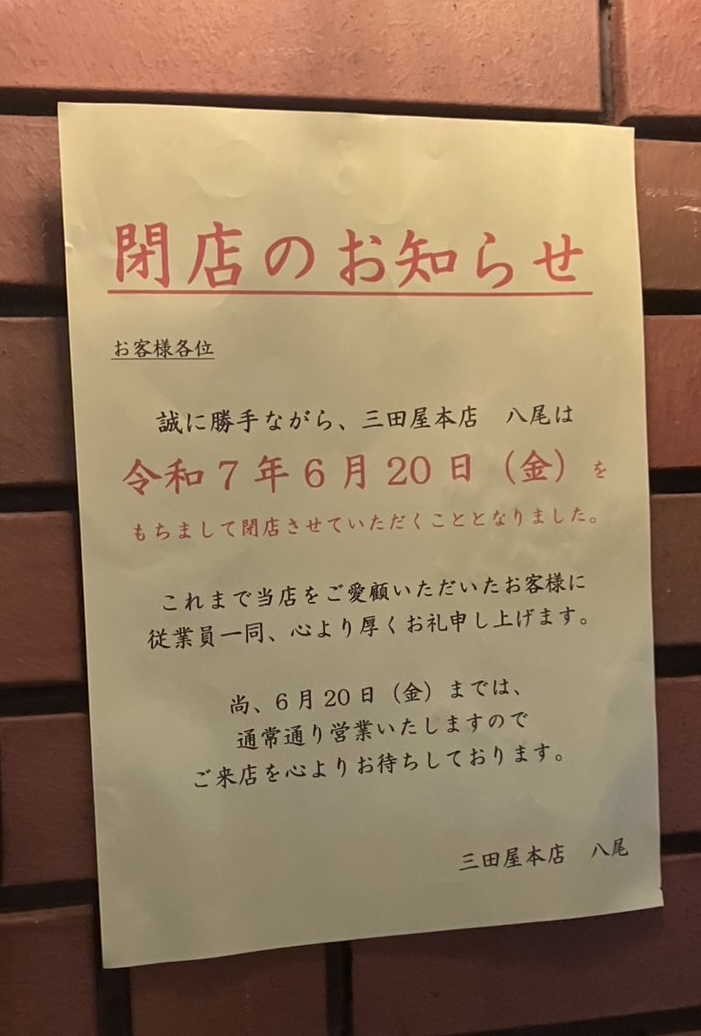 閉店のお知らせ
お客様各位
誠に勝手ながら、三田屋本店　八尾は
令和7年6月20日（金）を
もちまして閉店させていただくこととなりました。
これまで当店をご愛顧いただいたお客様に
従業員一同、心より厚くお礼申し上げます。
尚、6月20日（金）までは、
通常通り営業いたしますので
ご来店を心よりお待ちしております。
三田屋本店　八尾